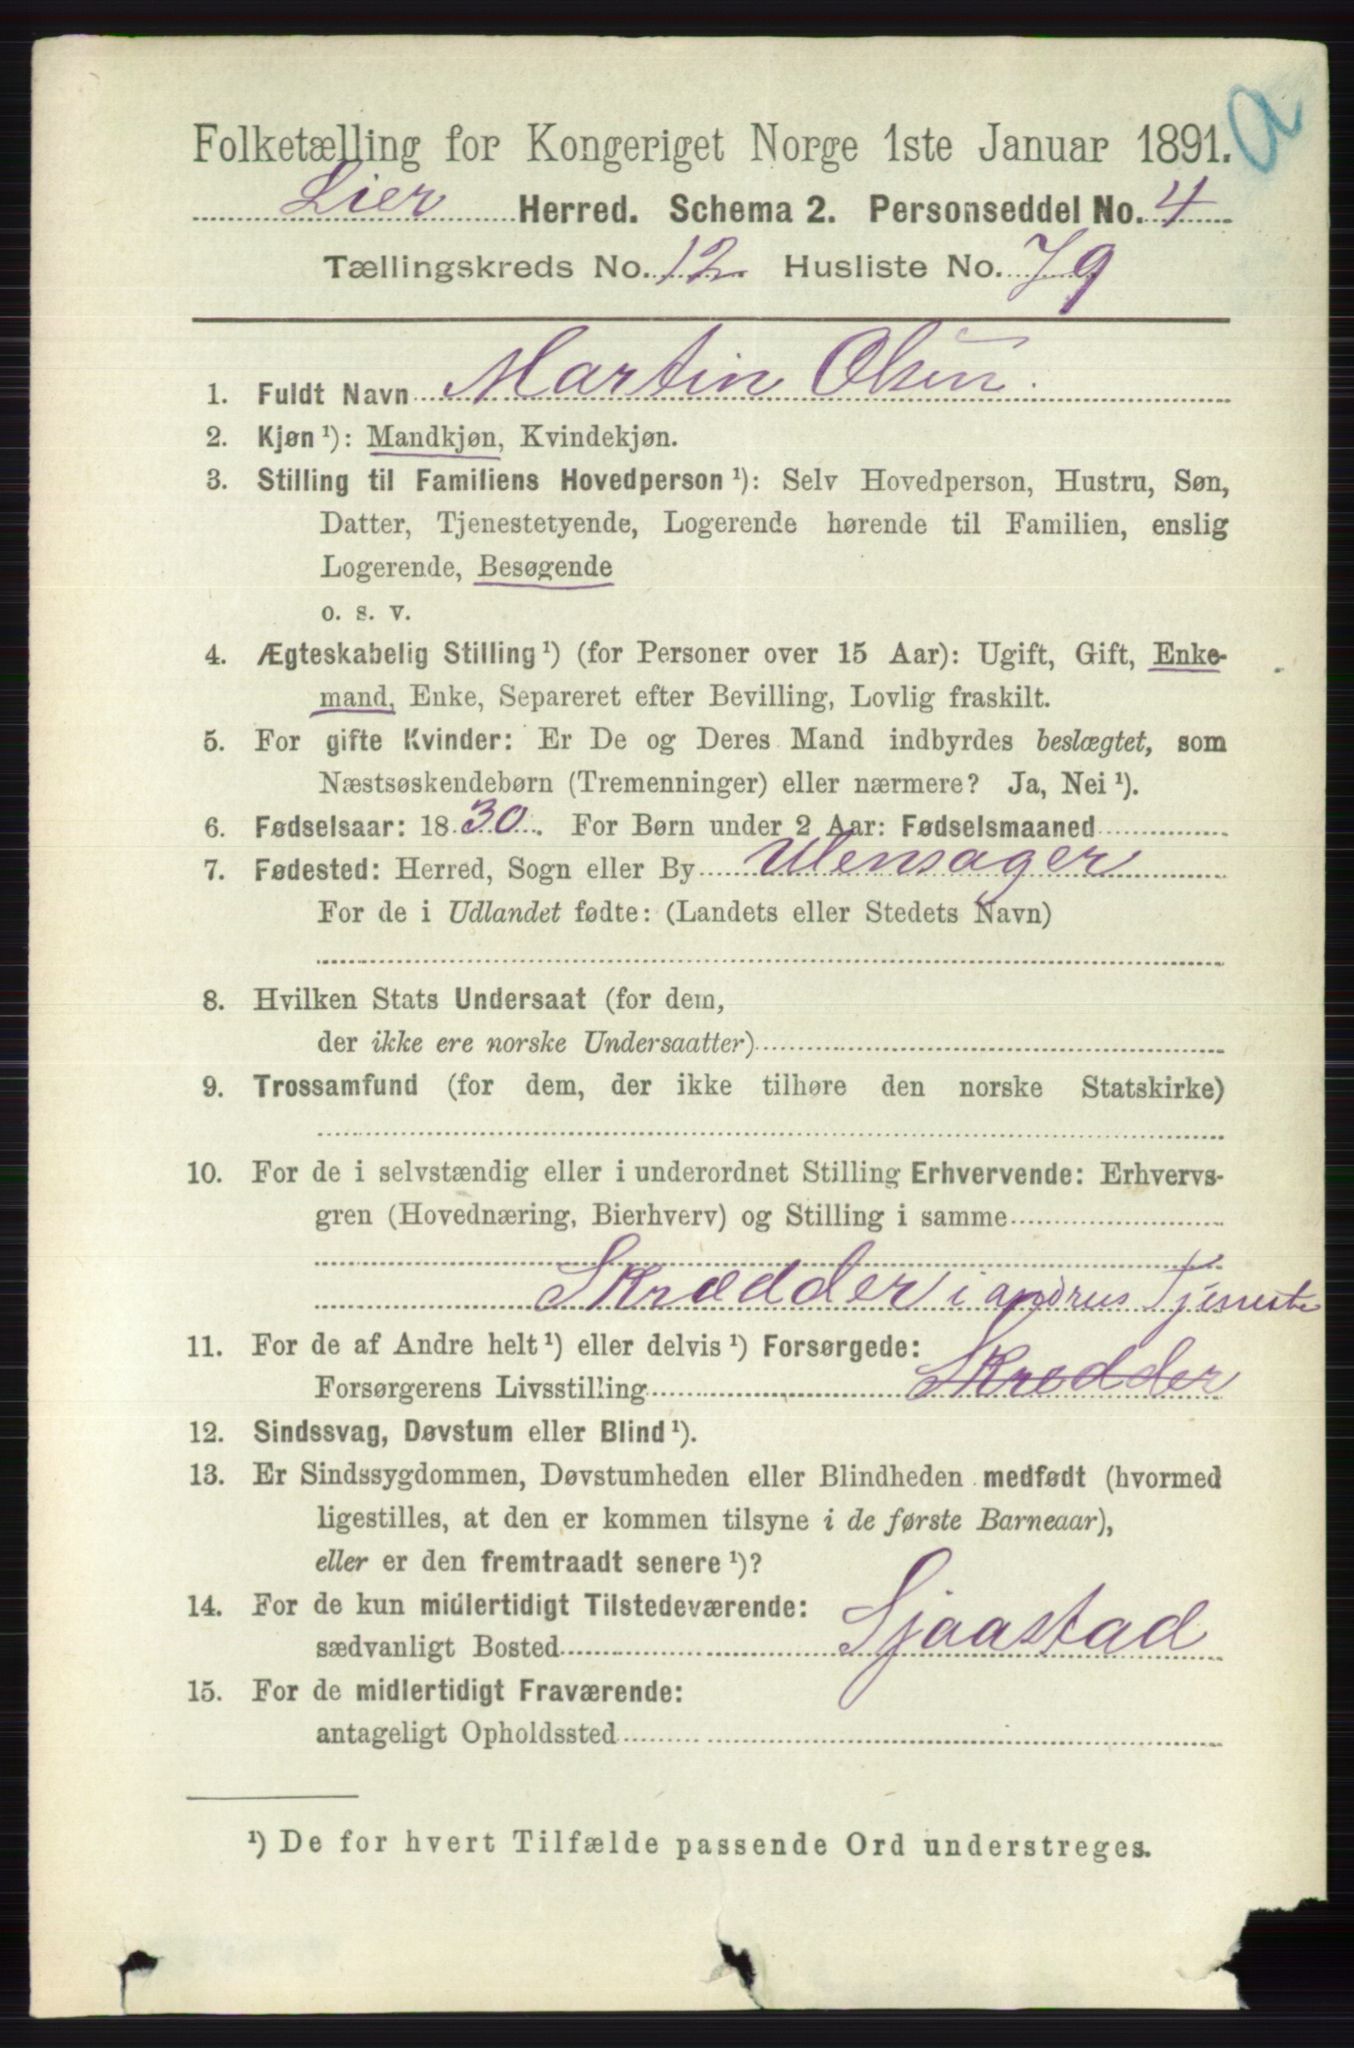 a
Folketælling for Kongeriget Norge 1ste Januar 1891.
Lier Herred. Schema 2. Personseddel No. 4
Tællingskreds No. 12. Husliste No. 79
1. Fuldt Navn Martin Olsen.
2. Kjøn ¹): Mandkjøn, Kvindekjøn.
3. Stilling til Familiens Hovedperson ¹): Selv Hovedperson, Hustru, Søn,
Datter, Tjenestetyende, Logerende hørende til Familien, enslig
Logerende, Besøgende
o. s. v.
4. Ægteskabelig Stilling ¹) (for Personer over 15 Aar): Ugift, Gift, Enke-
mand, Enke, Separeret efter Bevilling, Lovlig fraskilt.
5. For gifte Kvinder: Er De og Deres Mand indbyrdes beslægtet, som
Næstsøskendebørn (Tremenninger) eller nærmere? Ja, Nei ¹).
6. Fødselsaar: 1830. For Børn under 2 Aar: Fødselsmaaned
7. Fødested: Herred, Sogn eller By Ulensager
For de i Udlandet fødte: (Landets eller Stedets Navn)
8. Hvilken Stats Undersaat (for dem,
der ikke ere norske Undersaatter)
9. Trossamfund (for dem, der ikke tilhøre den norske Statskirke)
10. For de i selvstændig eller i underordnet Stilling Erhvervende: Erhvervs-
gren (Hovednæring, Bierhverv) og Stilling i samme
Skrædder i andres Tjeneste
11. For de af Andre helt ¹) eller delvis ¹) Forsørgede:
Forsørgerens Livsstilling Skrædder
12. Sindssvag, Døvstum eller Blind ¹).
13. Er Sindssygdommen, Døvstumheden eller Blindheden medfødt (hvormed
ligestilles, at den er kommen tilsyne i de første Barneaar),
eller er den fremtraadt senere ¹)?
14. For de kun midlertidigt Tilstedeværende:
sædvanligt Bosted Sjaastad
15. For de midlertidigt Fraværende:
antageligt Opholdssted
¹) De for hvert Tilfælde passende Ord understreges.